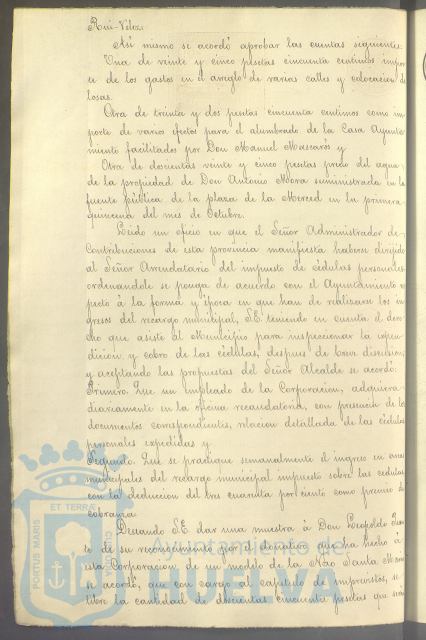 Rui-Velez.
Así mismo se acordó aprobar las cuentas siguientes:
Una de veinte y cinco pesetas cincuenta centimos impor
te de los gastos en el arreglo de varias calles y colocacion de
losas.
Otra de treinta y dos pesetas cincuenta centimos como im
porte de varios efectos para el alumbrado de la Casa Ayunta
miento facilitados por Don Manuel Mascarós y
Otra de doscientas veinte y cinco pesetas precio del agua
de la propiedad de Don Antonio Mora suministrada en la
fuente pública de la plaza de la Merced en la primera
quincena del mes de Octubre.
Leido un oficio en que el Señor Administrador de
Contribuciones de esta provincia manifiesta haberse dirijido
al Señor Arrendatario del impuesto de cédulas personales
ordenandole se ponga de acuerdo con el Ayuntamiento res
pecto á la forma y época en que han de realizarse los in
gresos del recargo municipal, S.E. teniendo en cuenta el dere
cho que asiste al Municipio para inspeccionar la espen
dicion y cobro de las cédulas, despues de breve discusion
y aceptando las propuestas del Señor Alcalde se acordó:
Primero. Que un empleado de la Corporacion, adquiera
diariamente en la oficina recaudatoria, con presencia de los
documentos correspondientes, relacion detallada de las cédulas
personales expedidas y
Segundo. Que se practique semanalmente el ingreso en arcas
municipales del recargo municipal impuesto sobre las cédulas
con la deduccion del tres cuartillo por ciento como premio de
cobranza.
Deseando S.E. dar una muestra á Don Leopoldo
to de su reconocimiento por el donativo que ha hecho á
esta Corporacion de un modelo de la Náo Santa Maria
se acordó, que con cargo al capitulo de imprevistos, se
libre la cantidad de doscientas cincuenta pesetas que
PORTUS MARIS ET TERRÆ
Ayuntamiento de
HUELVA